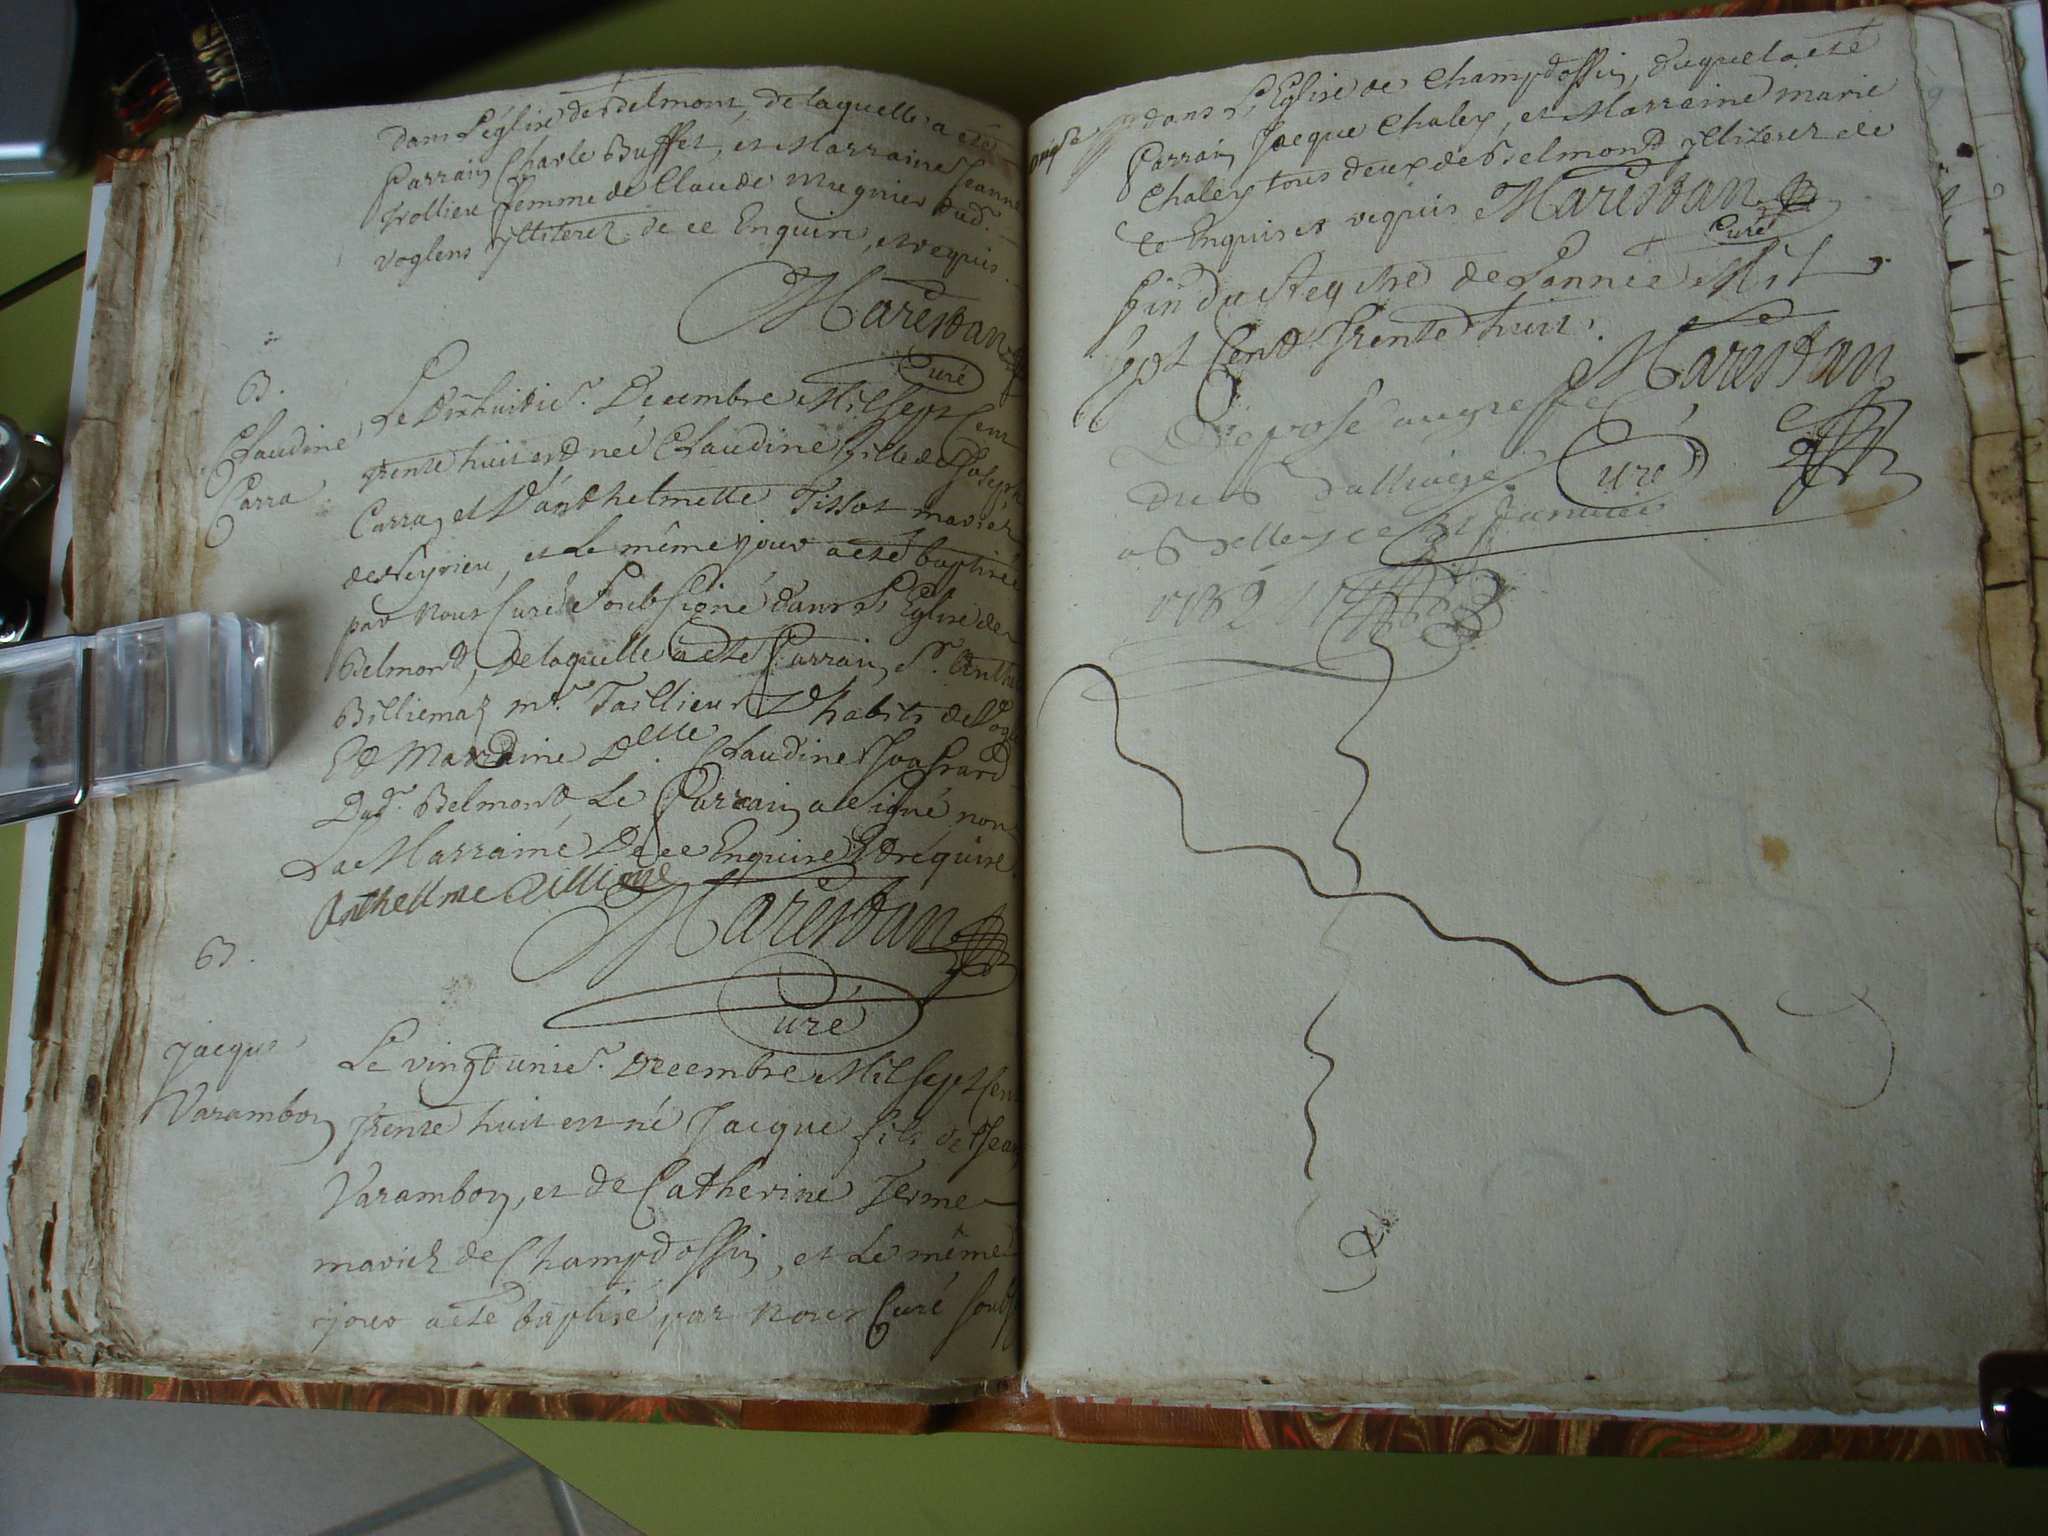 dans L'église de Belmont, de laquelle a été
Parrain Charle Buffet, et Marraine Jeanne
Trollieu femme de Claude Mugnier dud.
voglens illiterez de ce Enquire, et requis
Marestan
Curé
B.
Claudine
Carra
Le Dixhuitie. Decembre Mil Sept Cent
trente huit est née Claudine fille de Joseph
Carra, et D'anthelmette Tissot mariés
de Neyrieu, et Le même jour a été baptisée
par Nous Curé Soubsigné dans L'Eglise de
Belmont, de laquelle a été Parrain Sr. Anthe
Billiemaz mre. Taillieur D'habits de Vog
Et Marraine Delle. Claudine
Dud. Belmont, Le Parrain a Signé non
La Marraine De ce Enquire Et requise
Anthellme Billime
Marestan
Curé
B.
Jacque
Varambon
Le vingt unie. Decembre Mil Sept Cen
trente huit est né Jacque fils de Jean
Varambon, et de Catherine Terme
mariez de Champdossin, et Le même
jour a été baptisé par Nous Curé Soubs
dans L'Eglise de Champdossin, duquel a été
Parrain Jacque Chaley, et Marraine marie
Chaley tous deux de Belmont illiterez de
ce Enquis et requis Marestan
Curé
fin du Regitre de L'année Mil
Sept Cent trente huit.
Marestan
Curé
Déposé au greffe
du Balliage
a Belley ce 21 Janvier
1739